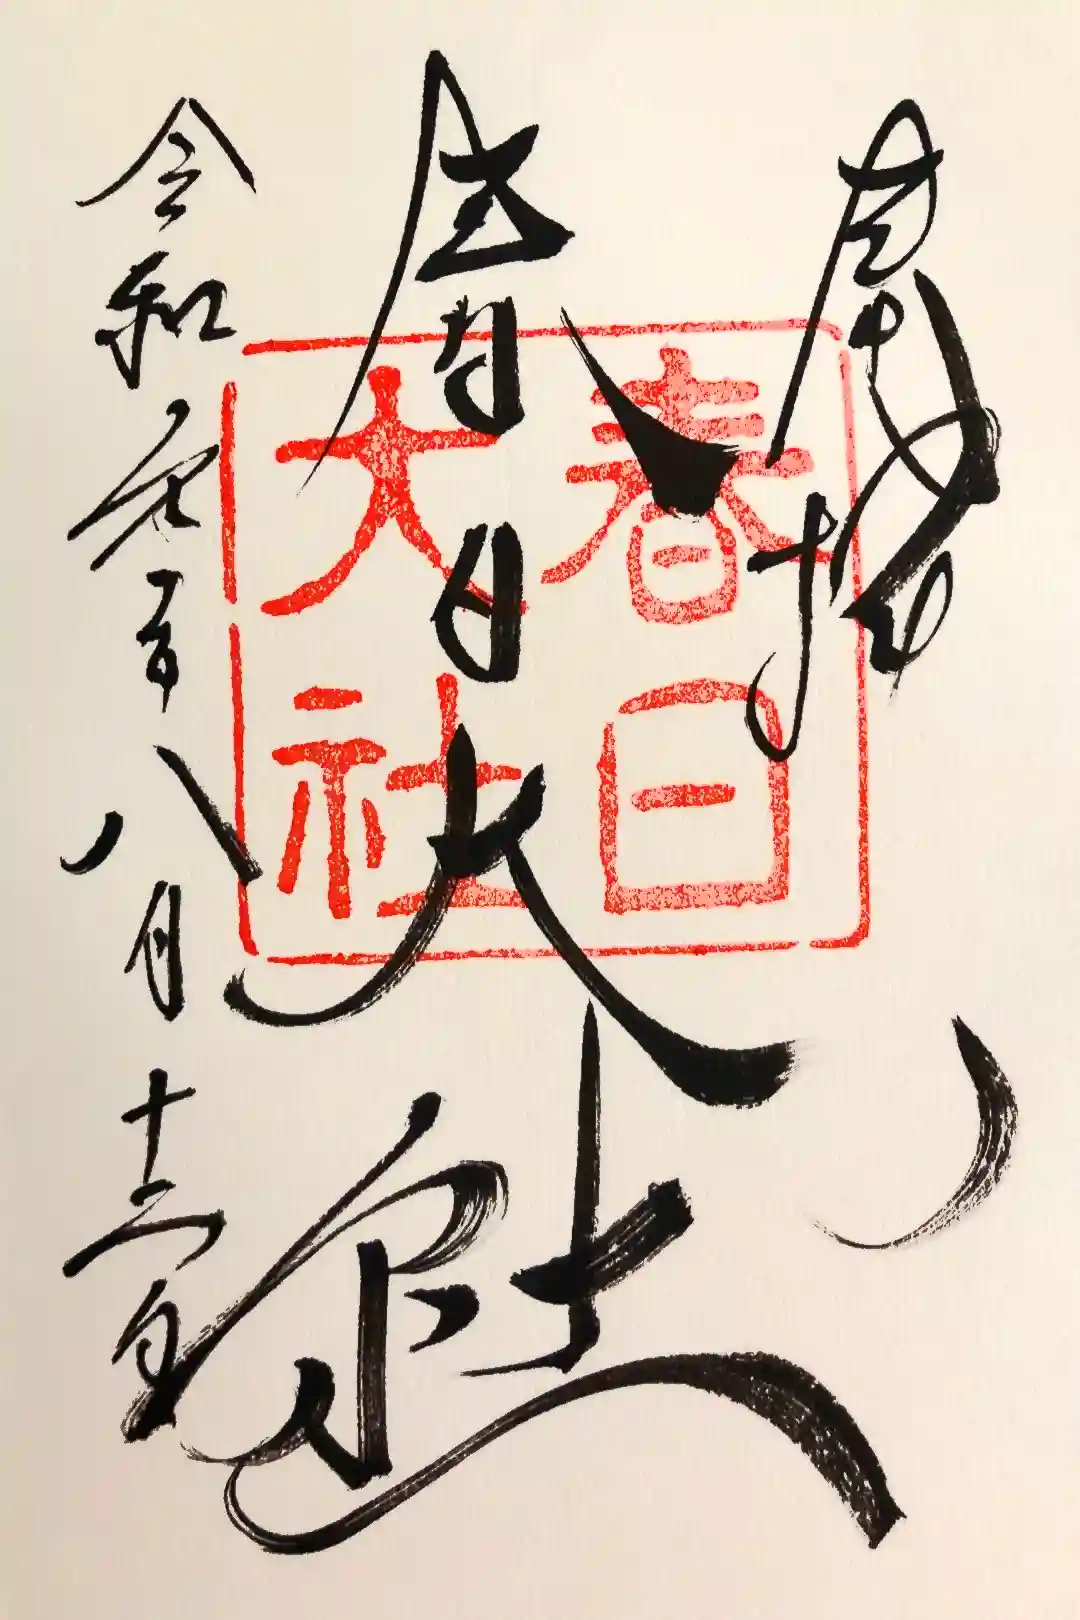 奉拝
春日大社
令和元年八月
春日
大社